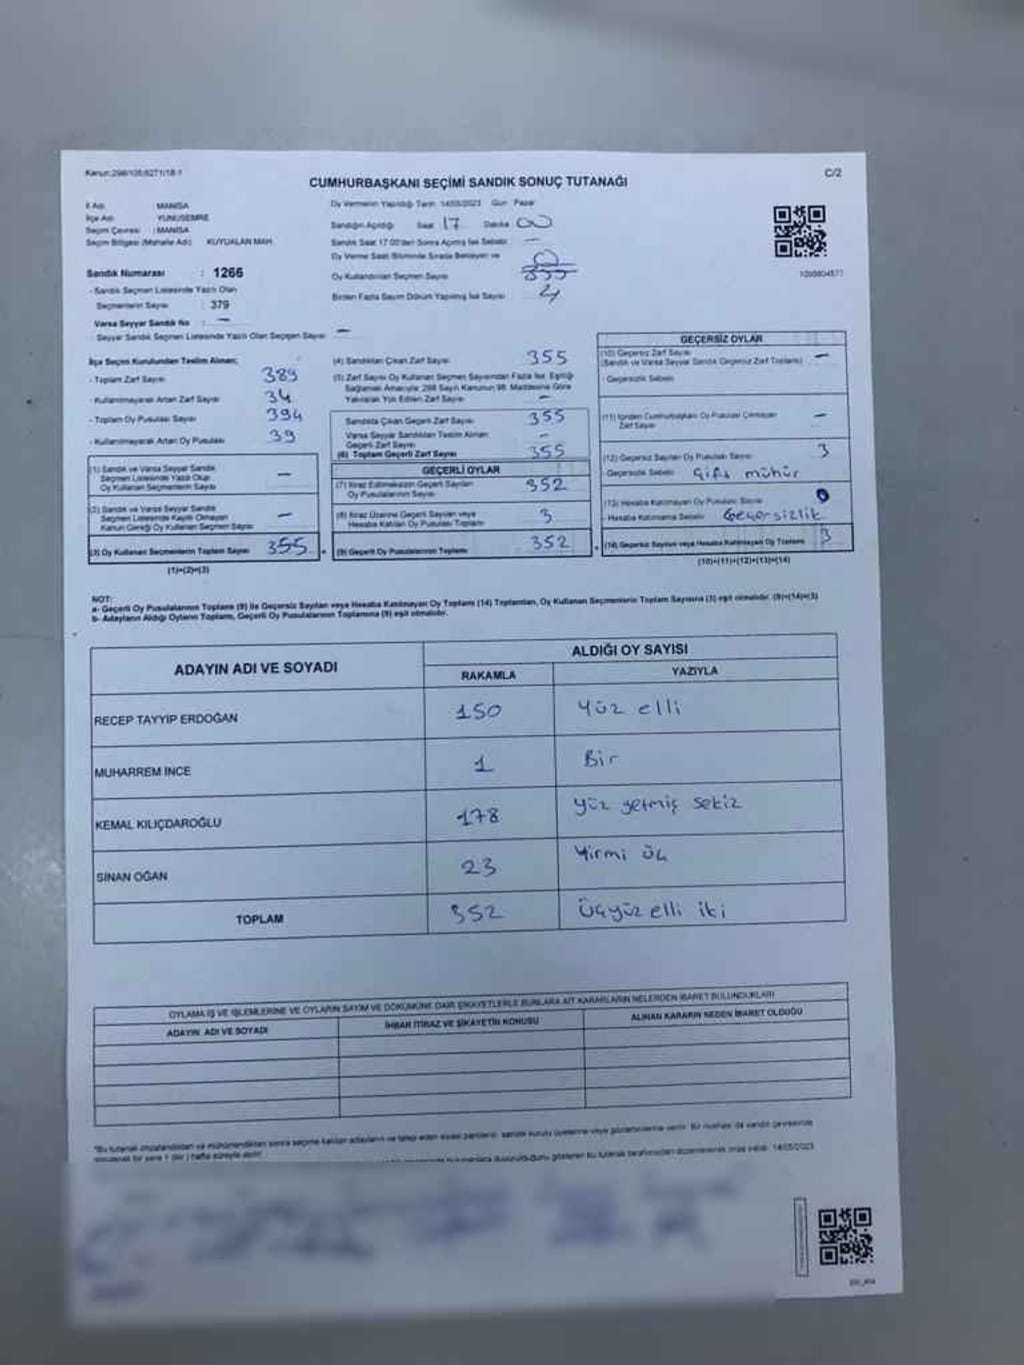 Kanun:298/105;6271/18-1
C/2
CUMHURBAŞKANI SEÇİMİ SANDIK SONUÇ TUTANAĞI
İl Adı : MANİSA
İlçe Adı : YUNUSEMRE
Seçim Çevresi : MANİSA
Seçim Bölgesi (Mahalle Adı) KUYUALAN MAH.
Oy Vermenin Yapıldığı Tarih: 14/05/2023 Gün: Pazar
Sandığın Açıldığı Saat 17 Dakika 00
Sandık Saat 17:00'den Sonra Açılmış İse Sebebi: —
Oy Verme Saati Bitiminde Sırada Bekleyen ve
Oy Kullandırılan Seçmen Sayısı
Birden Fazla Sayım Döküm Yapılmış İse Sayısı
Sandık Numarası : 1266
- Sandık Seçmen Listesinde Yazılı Olan
Seçmenlerin Sayısı : 379
Varsa Seyyar Sandık No : —
- Seyyar Sandık Seçmen Listesinde Yazılı Olan Seçmen Sayısı —
İlçe Seçim Kurulundan Teslim Alınan;
- Toplam Zarf Sayısı 389
- Kullanılmayarak Artan Zarf Sayısı 34
- Toplam Oy Pusulası Sayısı 394
- Kullanılmayarak Artan Oy Pusulası 39
(1) Sandık ve Varsa Seyyar Sandık
Seçmen Listesinde Yazılı Olup
Oy Kullanan Seçmenlerin Sayısı —
(2) Sandık ve Varsa Seyyar Sandık
Seçmen Listesinde Kayıtlı Olmayan
Kanun Gereği Oy Kullanan Seçmen Sayısı —
(3) Oy Kullanan Seçmenlerin Toplam Sayısı 355
(1)+(2)=(3)
(4) Sandıktan Çıkan Zarf Sayısı 355
(5) Zarf Sayısı Oy Kullanan Seçmen Sayısından Fazla İse, Eşitliği
Sağlamak Amacıyla 298 Sayılı Kanunun 98. Maddesine Göre
Yakılarak Yok Edilen Zarf Sayısı —
Sandıkta Çıkan Geçerli Zarf Sayısı 355
Varsa Seyyar Sandıktan Teslim Alınan
Geçerli Zarf Sayısı —
(6) Toplam Geçerli Zarf Sayısı 355
GEÇERLİ OYLAR
(7) İtiraz Edilmeksizin Geçerli Sayılan
Oy Pusulalarının Sayısı 352
(8) İtiraz Üzerine Geçerli Sayılan veya
Hesaba Katılan Oy Pusulası Toplamı 3
(9) Geçerli Oy Pusulalarının Toplamı 352
GEÇERSİZ OYLAR
(10) Geçersiz Zarf Sayısı
(Sandık ve Varsa Seyyar Sandık Geçersiz Zarf Toplamı) —
- Geçersizlik Sebebi
(11) İçinden Cumhurbaşkanı Oy Pusulası Çıkmayan
Zarf Sayısı —
(12) Geçersiz Sayılan Oy Pusulası Sayısı 3
- Geçersizlik Sebebi Çift mühür
(13) Hesaba Katılmayan Oy Pusulası Sayısı 0
- Hesaba Katılmama Sebebi Geçersizlik
(14) Geçersiz Sayılan veya Hesaba Katılmayan Oy Toplamı 3
(10)+(11)+(12)+(13)=(14)
NOT:
a- Geçerli Oy Pusulalarının Toplamı (9) ile Geçersiz Sayılan veya Hesaba Katılmayan Oy Toplamı (14) Toplamları, Oy Kullanan Seçmenlerin Toplam Sayısına (3) eşit olmalıdır. (9)+(14)=(3)
b- Adayların Aldığı Oyların Toplamı, Geçerli Oy Pusulalarının Toplamına (9) eşit olmalıdır.
ADAYIN ADI VE SOYADI ALDIĞI OY SAYISI
RAKAMLA YAZIYLA
RECEP TAYYİP ERDOĞAN 150 Yüz elli
MUHARREM İNCE 1 Bir
KEMAL KILIÇDAROĞLU 178 Yüz yetmiş sekiz
SİNAN OĞAN 23 Yirmi üç
TOPLAM 352 Üçyüz elli iki
OYLAMA İŞ VE İŞLEMLERİNE VE OYLARIN SAYIM VE DÖKÜMÜNE DAİR ŞİKAYETLERLE BUNLARA AİT KARARLARIN NELERDEN İBARET BULUNDUKLARI
ADAYIN ADI VE SOYADI İHBAR İTİRAZ VE ŞİKAYETİN KONUSU ALINAN KARARIN NEDEN İBARET OLDUĞU